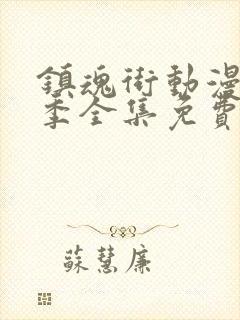 鎮魂街動漫
季全集免費
蘇慧廉